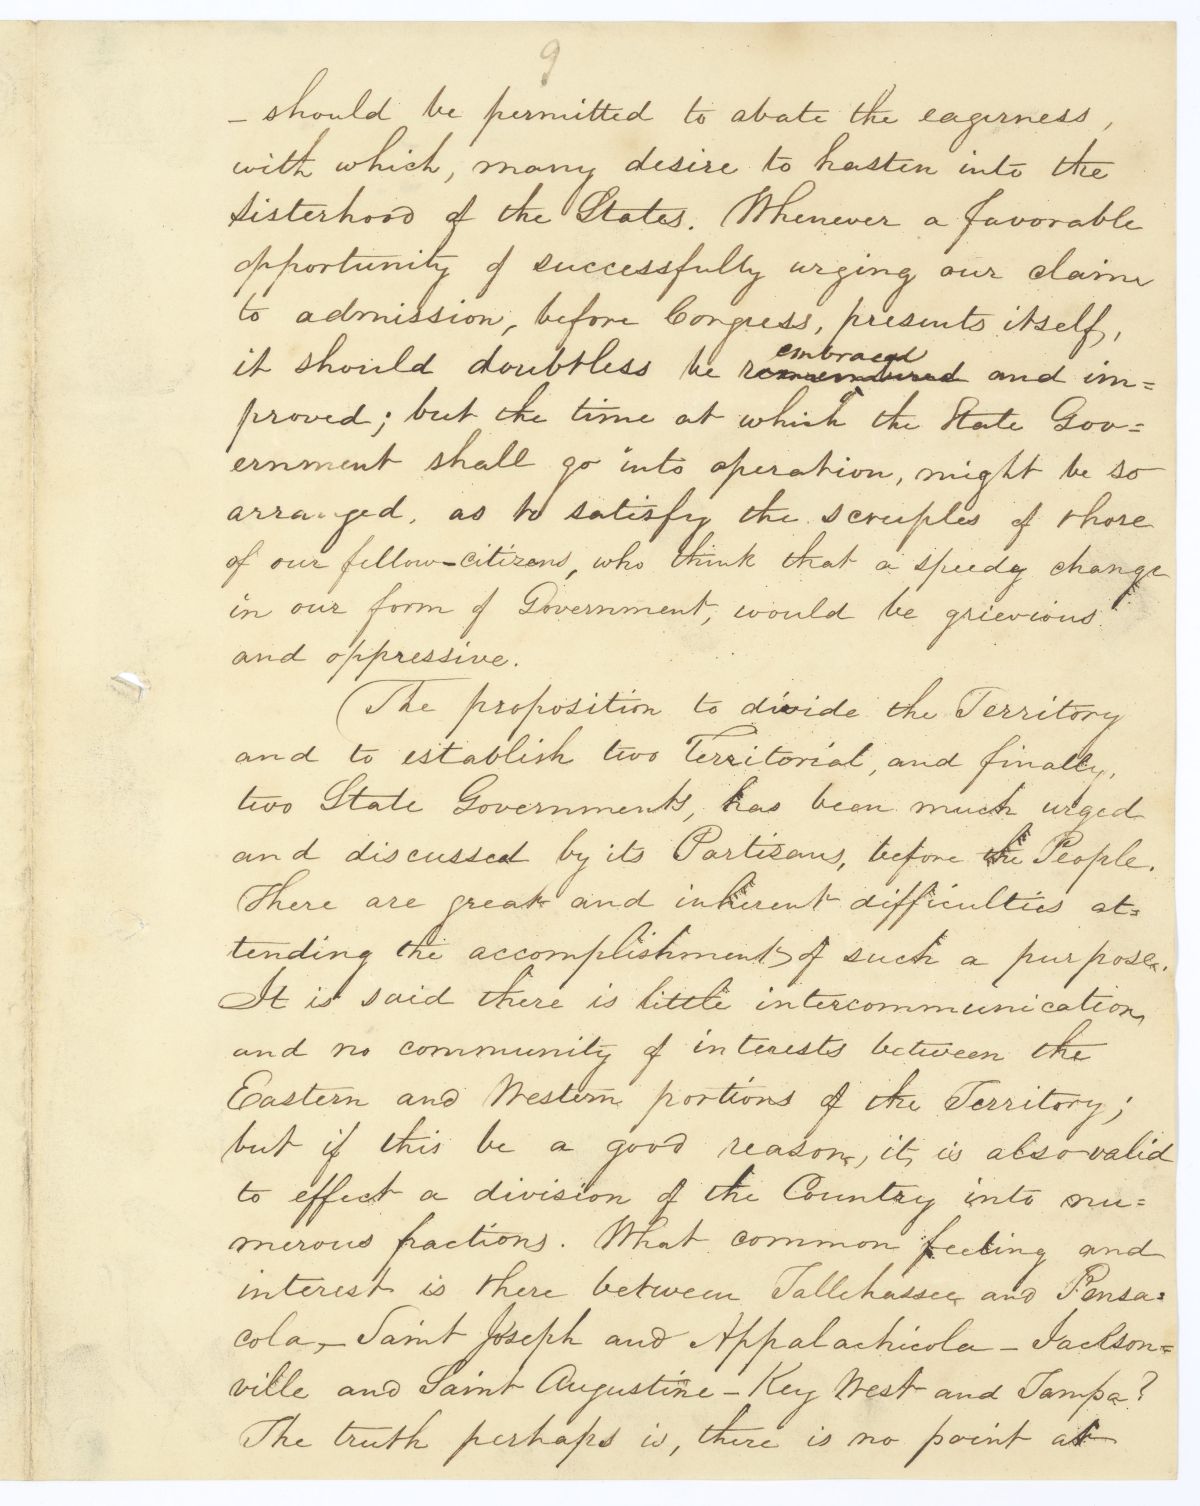 9
- should be permitted to abate the eagerness,
with which, many desire to hasten into the
sisterhood of the States. Whenever a favorable
opportunity of successfully urging our claim
to admission, before Congress, presents itself,
embraced
it should doubtless be remembered and im=
proved; but the time at which the State Gov=
ernment shall go into operation, might be so
arranged, as to satisfy the scruples of those
of our fellow-citizens, who think that a speedy change
in our form of Government, would be grievious
and oppressive.
The proposition to divide the Territory
and to establish two Territorial, and finally,
two State Governments, has been much urged
and discussed by its Partizans, before the People.
There are great and inherent difficulties at=
tending the accomplishment of such a purpose.
It is said there is little intercommunication,
and no community of interests between the
Eastern and Western portions of the Territory;
but if this be a good reason, it, is also valid
to effect a division of the Country into nu=
merous fractions. What common feeling and
interest is there between Tallehassee and Pensa=
cola, - Saint Joseph and Appalachicola - Jackson=
ville and Saint Augustine - Key West and Tampa?
The truth perhaps is, there is no point at